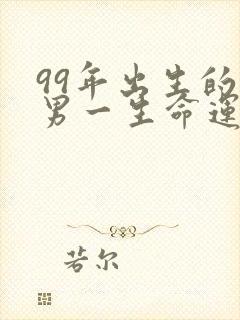 99年出生的
男一生命运
若尔